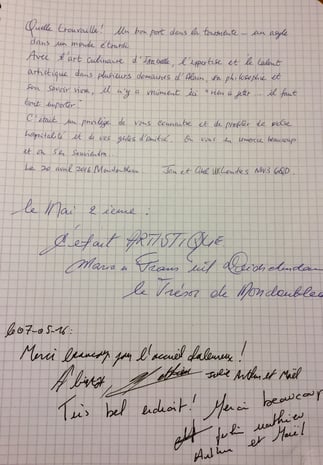 Quelle trouvaille! Un bon port dans la tourmente - un asyle
dans un monde étourdi.
Avec l'art culinaire d'Isabelle, l'expertise et le talent
artistique dans plusieurs domaines d'Alain, sa philosophie et
son savoir vivre, il n'y a vraiment ici "rien à jeter ... il faut
tout emporter."
C'était un privilège de vous connaître et de profiter de votre
hospitalité et de vos gestes d'amitié. On vous en remercie beaucoup
et on s'en souviendra...
Le 20 avril 2016 Mondoubleau Jan et Londres NW3
le Mai 2 ieme:
C'était ARTISTIQUE
Mario en Frans uit Leidschendam
le Trésor de Mondoubleau
le 07-05-16:
Merci beaucoup pour l'accueil chaleureux!
Mathieu Julie Arthur et Maël
Très bel endroit! Merci beaucoup
Julie Mathieu
Arthur et Maël